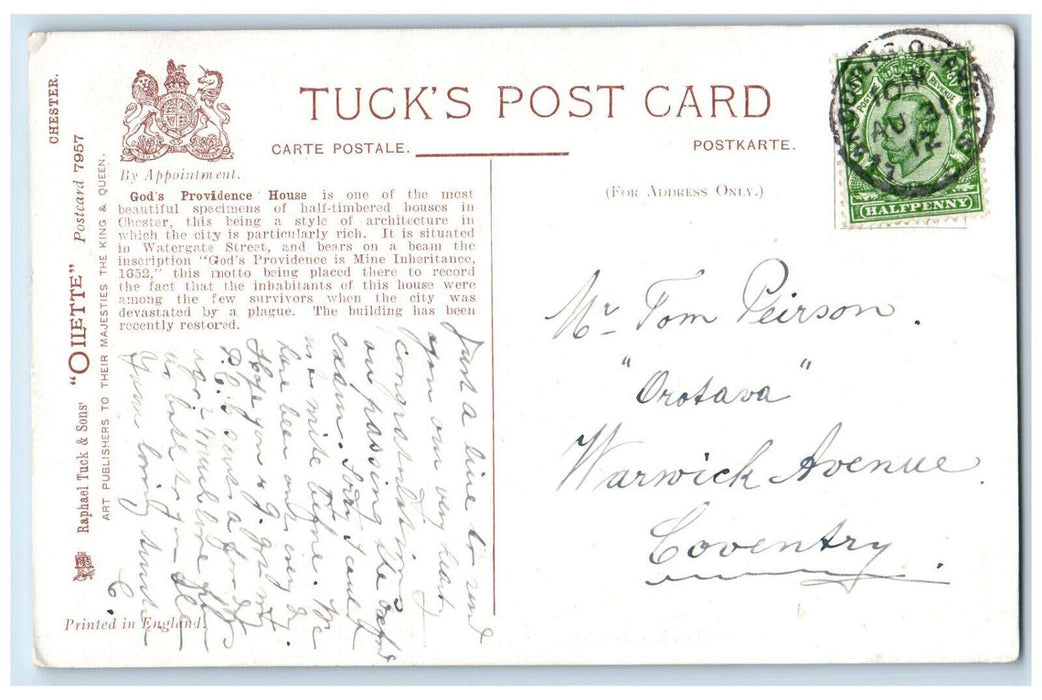 CHESTER.
Raphael Tuck & Sons' "OILETTE" Postcard 7957
ART PUBLISHERS TO THEIR MAJESTIES THE KING & QUEEN.
By Appointment.
TUCK'S POST CARD
CARTE POSTALE.
POSTKARTE.
(FOR ADDRESS ONLY.)
God's Providence House is one of the most
beautiful specimens of half-timbered houses in
Chester, this being a style of architecture in
which the city is particularly rich. It is situated
in Watergate Street, and bears on a beam the
inscription "God's Providence is Mine Inheritance,
1652," this motto being placed there to record
the fact that the inhabitants of this house were
among the few survivors when the city was
devastated by a plague. The building has been
recently restored.
Just a line to send
you our very hearty
congratulations
on passing the Oxford
exam. Sorry I could
not write before. We
have been out every day.
Hope you &
sends a
love from
us both to you all
Your loving
C.
Printed in England.
POSTAGE REVENUE
HALFPENNY
AU 3
12
Mr Tom Peirson.
"Orotava"
Warwick Avenue
Coventry.